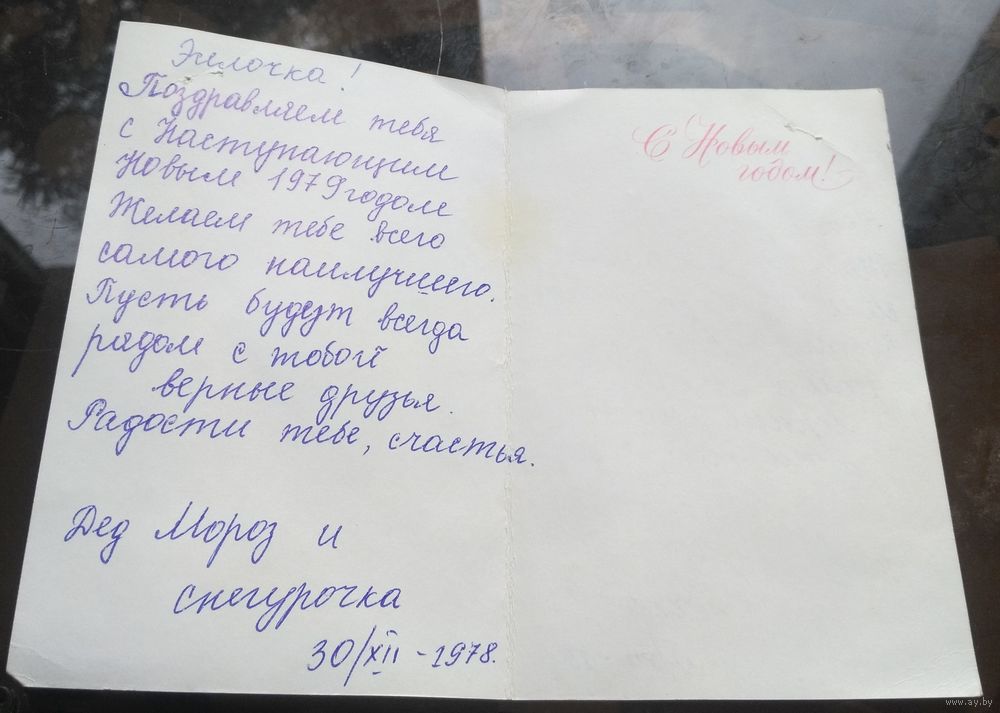 Эллочка!
Поздравляем тебя
с Наступающим
Новым 1979 годом
Желаем тебе всего
самого наилучшего.
Пусть будут всегда
рядом с тобой
верные друзья.
Радости тебе, счастья.
Дед Мороз и
снегурочка
30/XII – 1978.
С Новым
годом!
www.ay.by